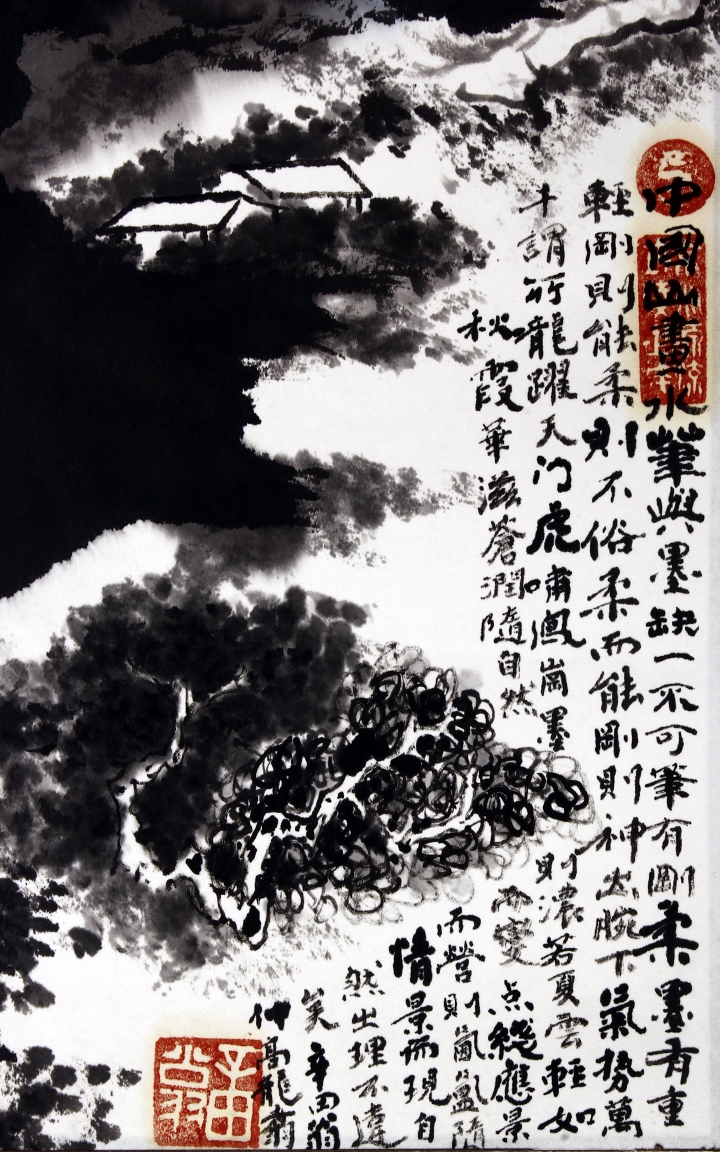 中國山畫水筆與墨缺一不可筆有剛柔墨有重
輕剛則能柔則不俗柔而能剛則神出腕下氣勢萬
千謂行龍躍天門虎嘯鳳崗墨則濃若夏雲輕如
秋霞華滋蒼潤隨自然而變点綫應景
而營則氤氳隨
情景而現自
然出理不違
矣辛田翁
仲高龍翁